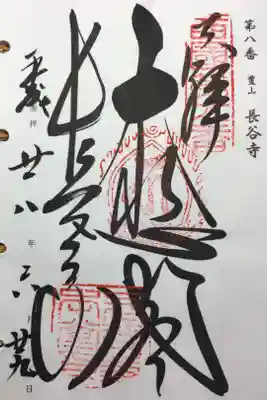 第八番 豊山 長谷寺
奉拝
大悲閣
長谷寺
平成 拝 廿八年六月廿九日